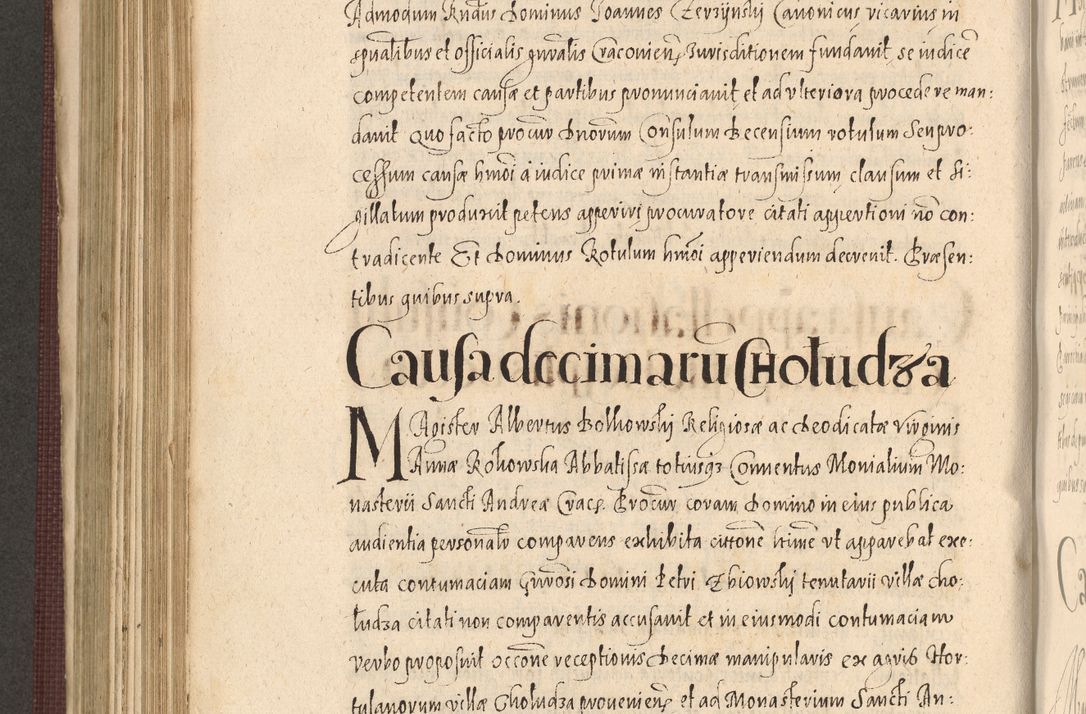 Admodum Rndus Dominus Joannes Zerzynskj Canonicus vicarius in
spualibus et officialis gnralis Cracovien, Jurisditionem fundavit, se iudice
competentem causæ et partibus pronunciavit et ad vlteriora procedere man:
davit quo facto procur dnorum Consulum Becensium rotulum seu pro:
cessum causæ hmoi a iudice primæ instantiæ transmissum, clausum et si:
gillatum produxit petens apperiri procuratore citati appertioni no con:
tradicente Et Dominus Rotulum hmoi apperiendum decrevit. Præsen:
tibus quibus supra.
Causa decimarũ Choludza
MAgister Albertus Bolkowskj Religiosæ ac Deodicatæ virginis
Annæ Rokowska Abbatissæ totiusq Conventus Monialium Mo:
nasterii Sancti Andreæ Crac. Procur, coram Domino in eius publica
audientia personalr comparens exhibita cittone ltime vt apparebat exe:
cuta contumaciam Gnrosi Domini Petri Zbiowskj tenutarii villæ Cho:
ludza citati non comparentis accusavit et in eiusmodi contumaciam
verbo proposuit occone receptionis decimæ manipularis ex agris Hor:
tulanorum villæ Choludza provenien, et ad Monasterium Sancti An: